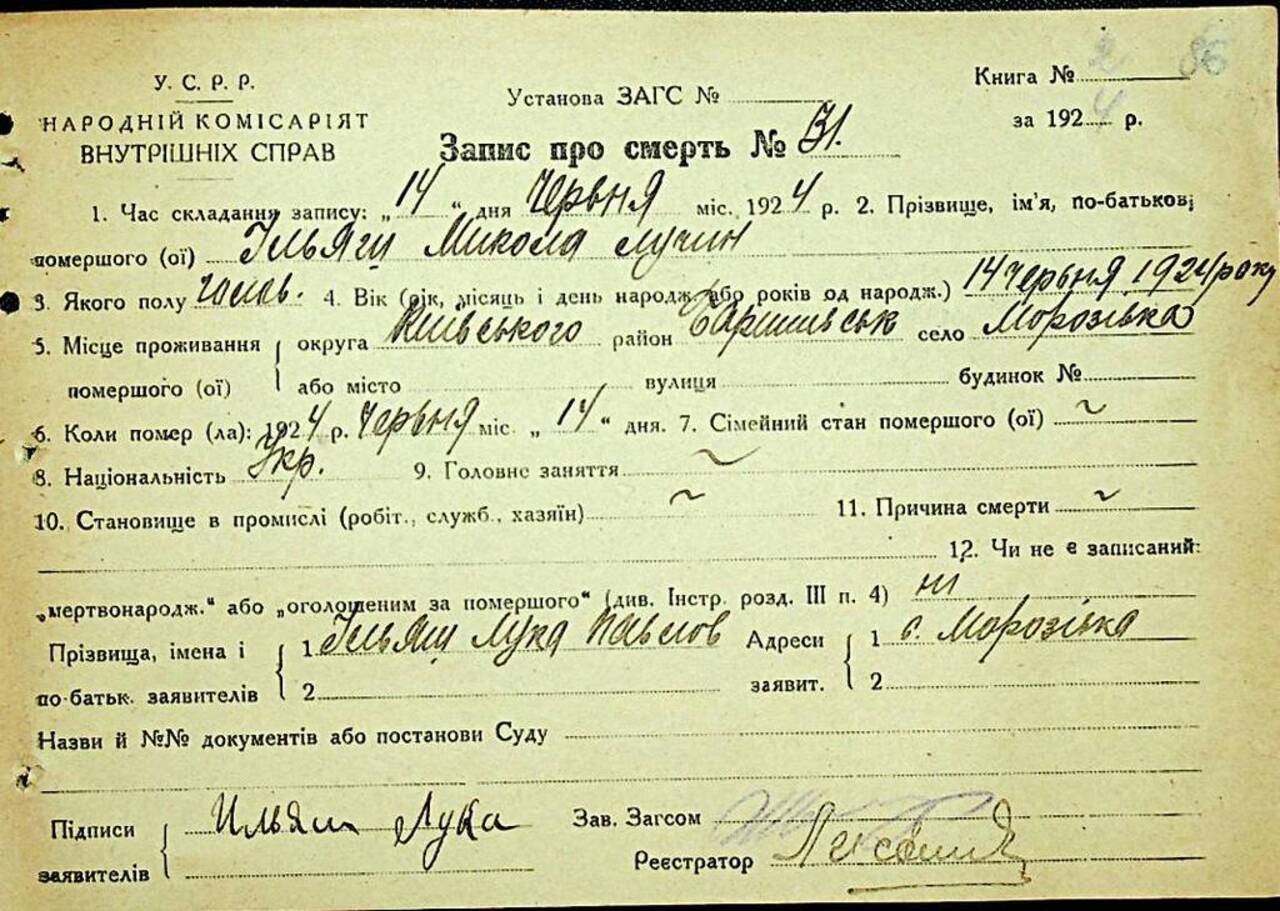 У. С. Р. Р.
НАРОДНІЙ КОМІСАРІЯТ
ВНУТРІШНІХ СПРАВ
Установа ЗАГС №
Книга № 2 86
за 1924 р.
Запис про смерть № 31.
1. Час складання запису: „14“ дня Червня міс. 1924 р. 2. Прізвище, ім'я, по-батькові
помершого (ої) Ільяш Микола Лучин
3. Якого полу Чолов. 4. Вік (рік, місяць і день народж. або років од народж.) 14 Червня 1924 року
5. Місце проживання округа Київського район Баришивськ село Морозівка
помершого (ої) або місто вулиця будинок №
6. Коли помер (ла): 1924 р. Червня міс. „14“ дня. 7. Сімейний стан помершого (ої) ~
8. Національність Укр. 9. Головне заняття ~
10. Становище в промислі (робіт., служб., хазяїн) ~ 11. Причина смерти ~
12. Чи не є записаний:
„мертвонародж.“ або „оголошеним за помершого“ (див. Інстр. розд. III п. 4) ні
Прізвища, імена і по-батьк. заявителів 1 Ільяш Лука Павлов Адреси заявит. 1 с. Морозівка
2 2
Назви й №№ документів або постанови Суду
Підписи заявителів Ильяш Лука Зав. Загсом
Реєстратор